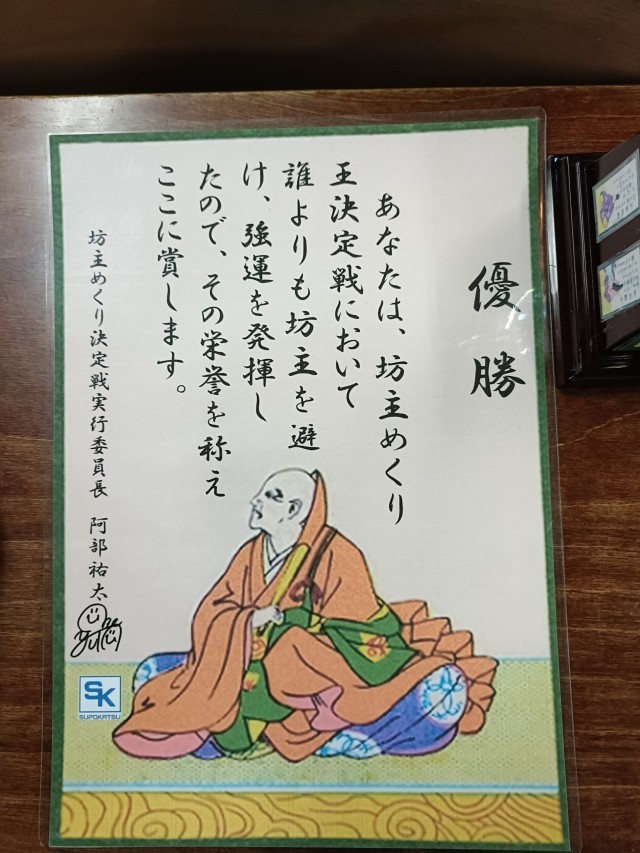 優勝
あなたは、坊主めくり
王決定戦において
誰よりも坊主を避
け、強運を発揮し
たので、その栄誉を称え
ここに賞します。
坊主めくり決定戦実行委員長 阿部祐太
SK
SUPOKATSU